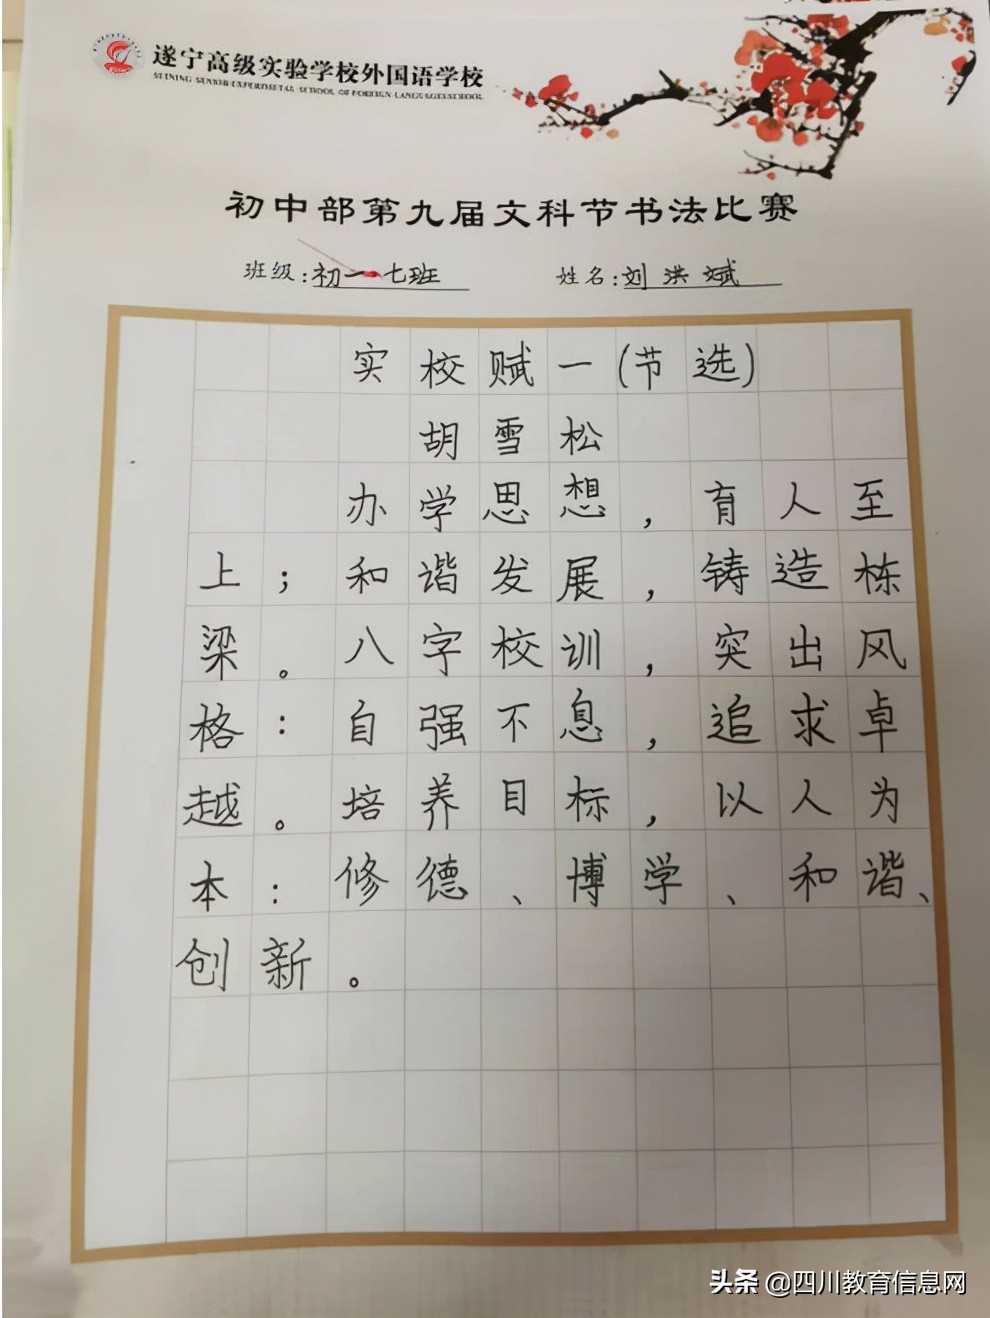 遂宁高级实验学校外国语学校
SUINING SENIOR EXPERIMETAL SCHOOL OF FOREIGN LANGUAGES SCHOOL
初中部第九届文科节书法比赛
班级:初一七班 姓名:刘洪斌
实校赋一(节选)
胡雪松
办学思想，育人至
上；和谐发展，铸造栋
梁。八字校训，突出风
格：自强不息，追求卓
越。培养目标，以人为
本：修德、博学、和谐、
创新。
头条 @四川教育信息网